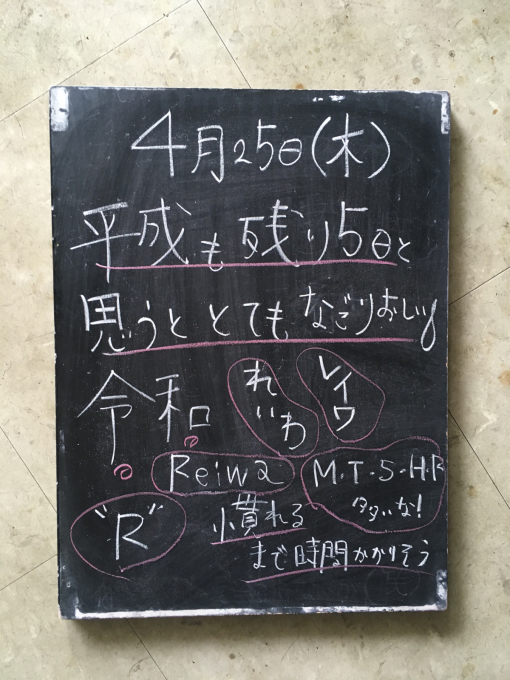 4月25日(木)
平成も残り5日と
思うととてもなごりおしい
令和
れいわ
レイワ
Reiwa
M.T.S.H.R
多いな!
"R"
慣れる
まで時間かかりそう